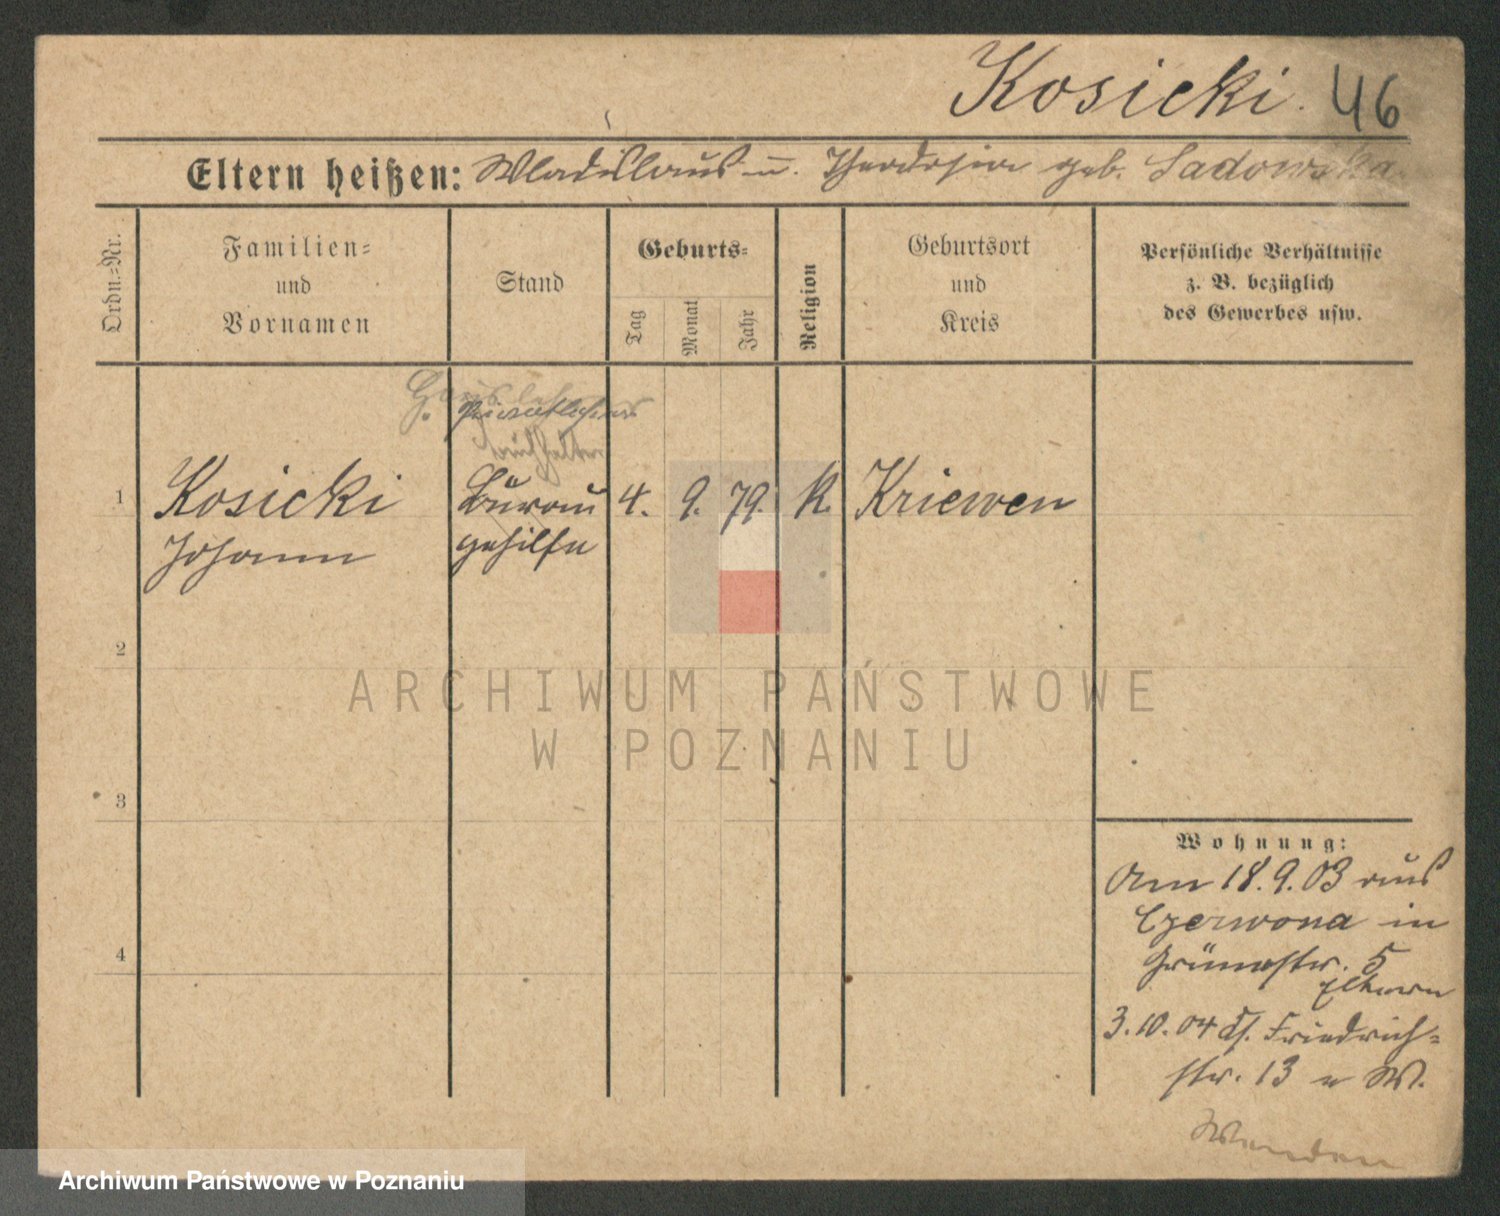 Kosicki. 46
Eltern heißen: Wladislaus u. Theodosia geb. Sadowska.
Ordn.=Nr.
Familien=
und
Vornamen
Stand
Geburts=
Tag
Monat
Jahr
Religion
Geburtsort
und
Kreis
Persönliche Verhältnisse
z. B. bezüglich
des Gewerbes usw.
H. Hauslehrer
Privatlehrer
Buchhalter
1 Kosicki Bürau 4. 9. 79. k. Kriewen
Johann gehilfe
2
3
4
ARCHIWUM PAŃSTWOWE
W POZNANIU
Wohnung:
Am 18.9.03 aus
Czerwona in
Grünestr. 5
Eltern
3.10.04 Friedrich=
str. 13 W.
Wenden
Archiwum Państwowe w Poznaniu